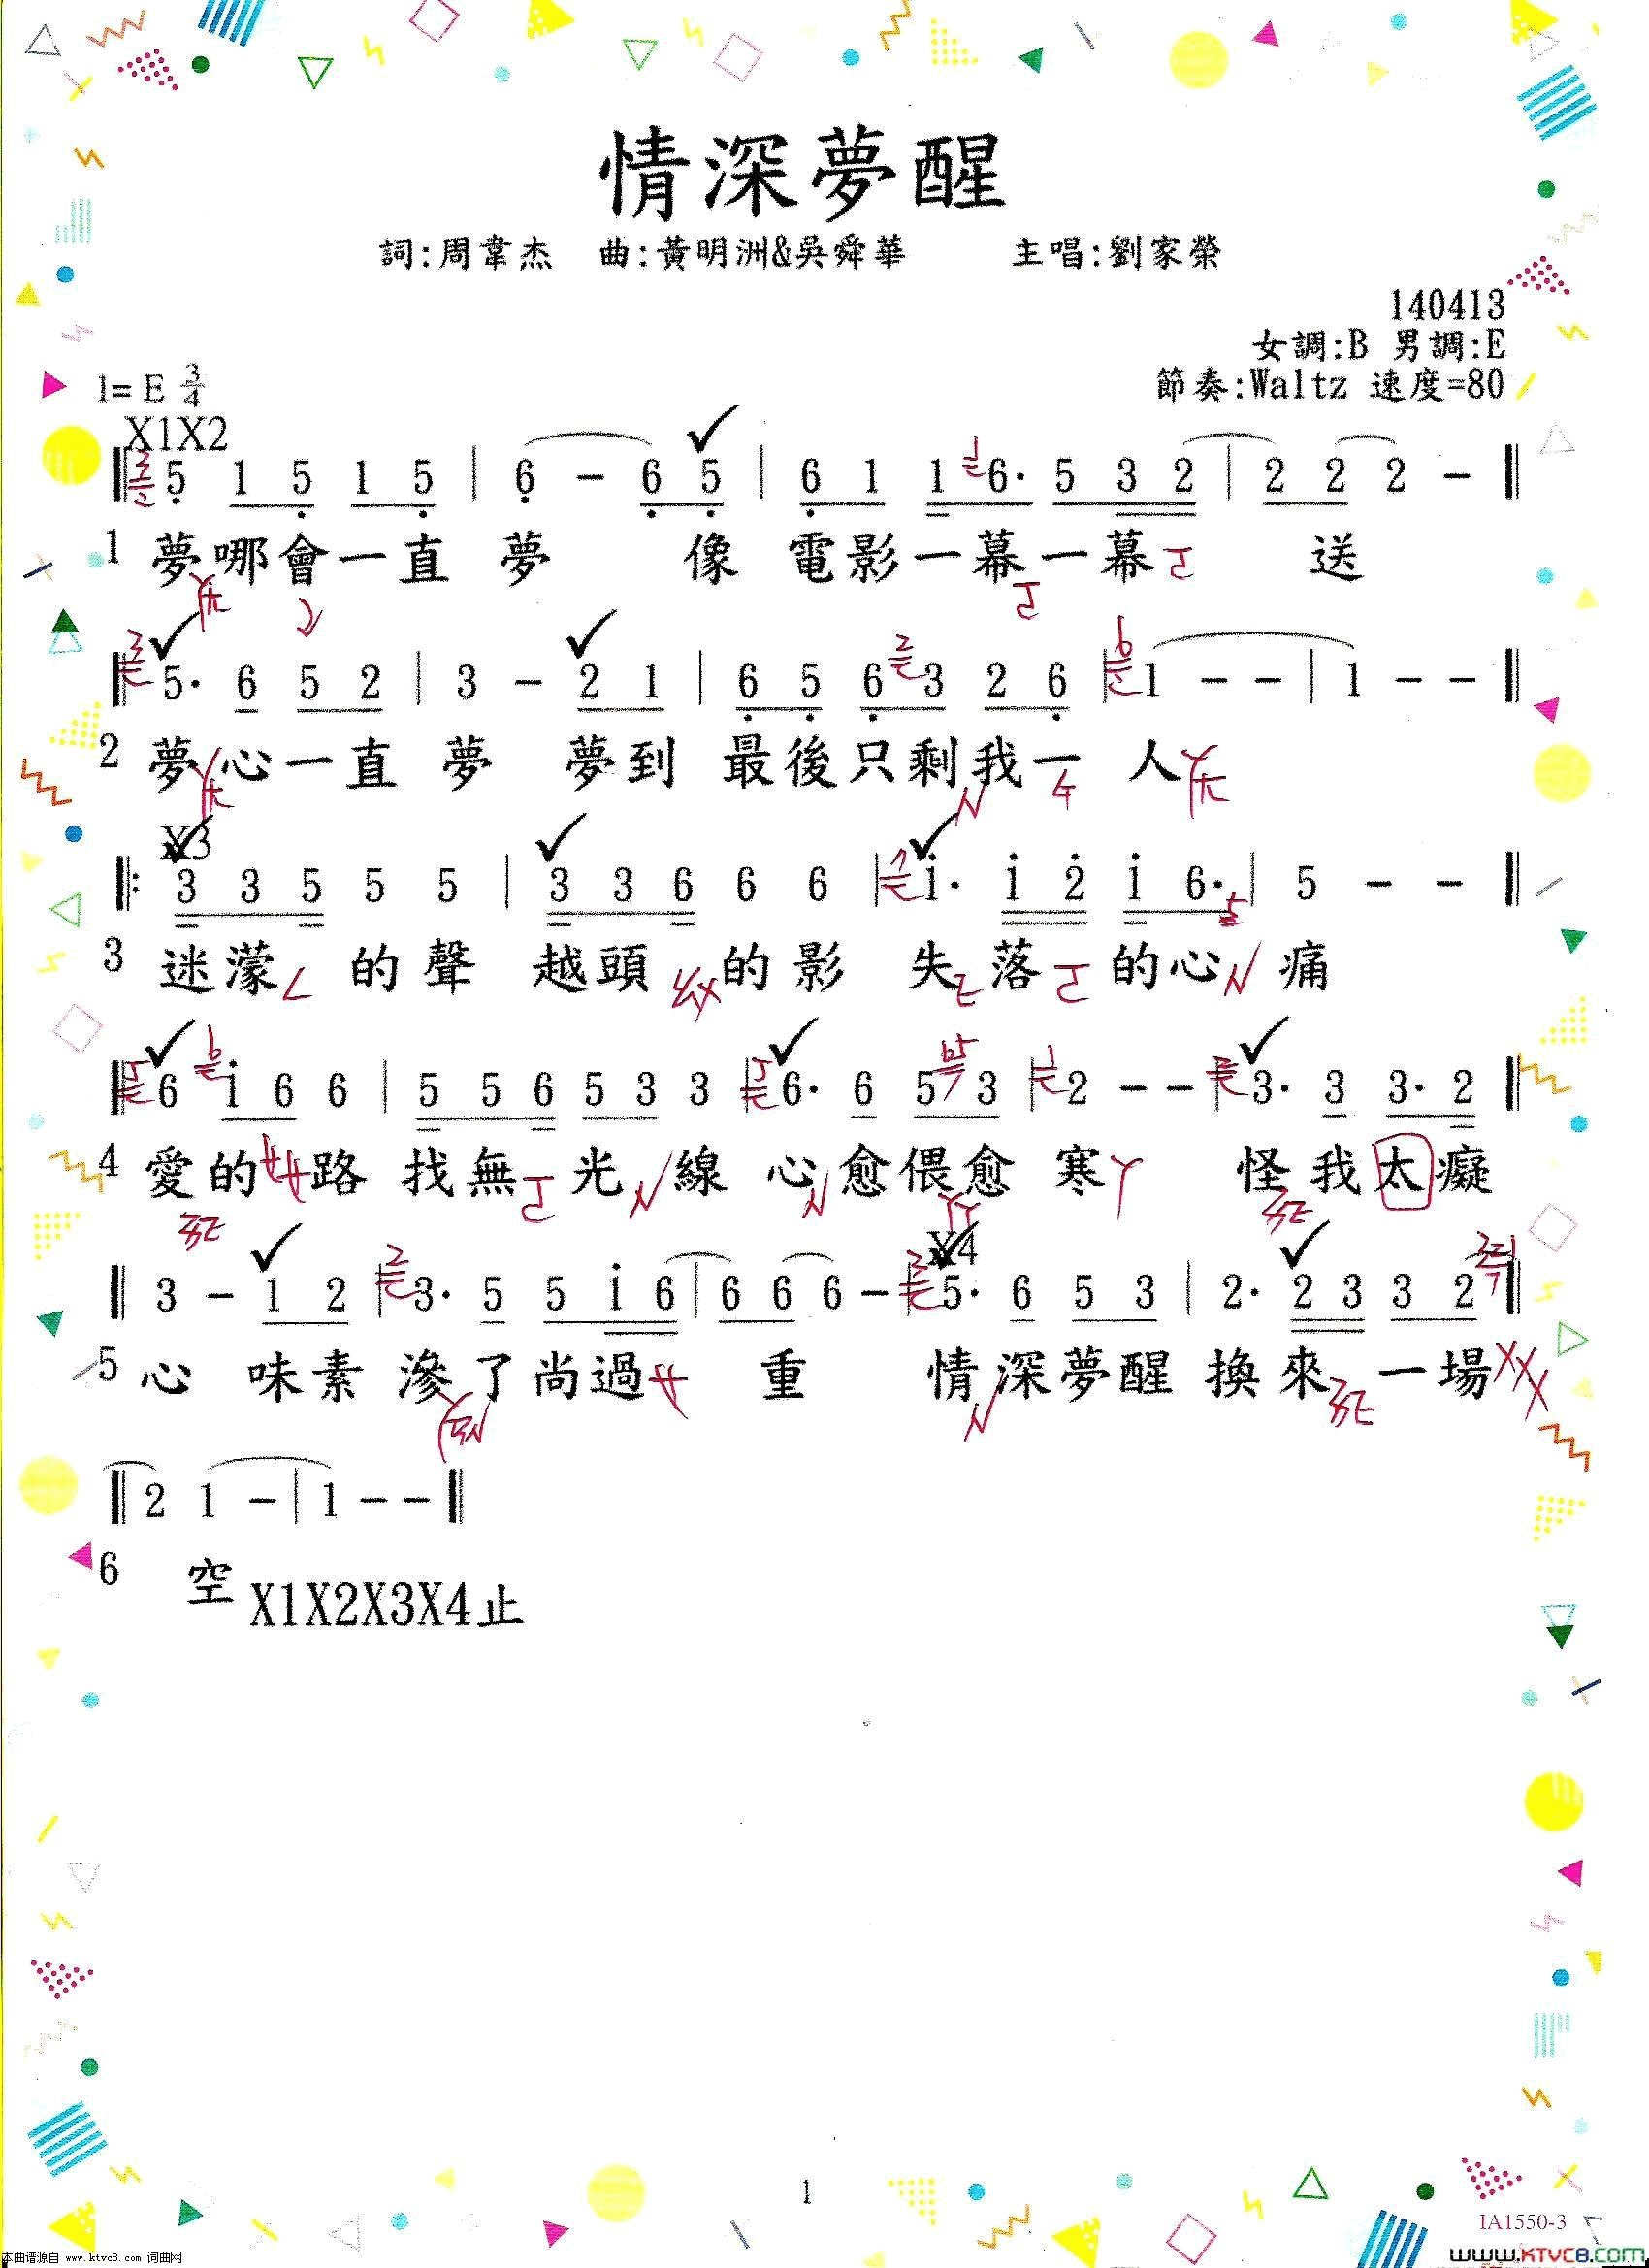 情深夢醒
詞:周韋杰 曲:黃明洲&吳舜華 主唱:劉家榮
140413
女調:B 男調:E
1= E 3/4 節奏:Waltz 速度=80
X1X2
5 1 5 1 5 | 6 - 6 5 | 6 1 1 6· 5 3 2 | 2 2 2 -
1 夢哪會一直夢 像 電影一幕一幕 送
5· 6 5 2 | 3 - 2 1 | 6 5 6 3 2 6 | 1 - - | 1 - -
2 夢心一直夢 夢到 最後只剩我一 人
X3
3 3 5 5 5 | 3 3 6 6 6 | i· i 2 i 6· | 5 - -
3 迷濛 的聲 越頭 的影 失 落 的心 痛
6 i 6 6 | 5 5 6 5 3 3 | 6· 6 5 3 | 2 - - | 3· 3 3· 2
4 愛的 路 找無 光 線 心愈偎愈 寒 怪我太癡
X4
3 - 1 2 | 3· 5 5 i 6 | 6 6 6 - | 5· 6 5 3 | 2· 2 3 3 2
5 心 味素 滲了尚過 重 情深夢醒 換來 一場
2 1 - | 1 - -
6 空 X1X2X3X4止
1
IA1550-3
本曲谱源自 www.ktvc8.com 词曲网
www.KTVC8.com